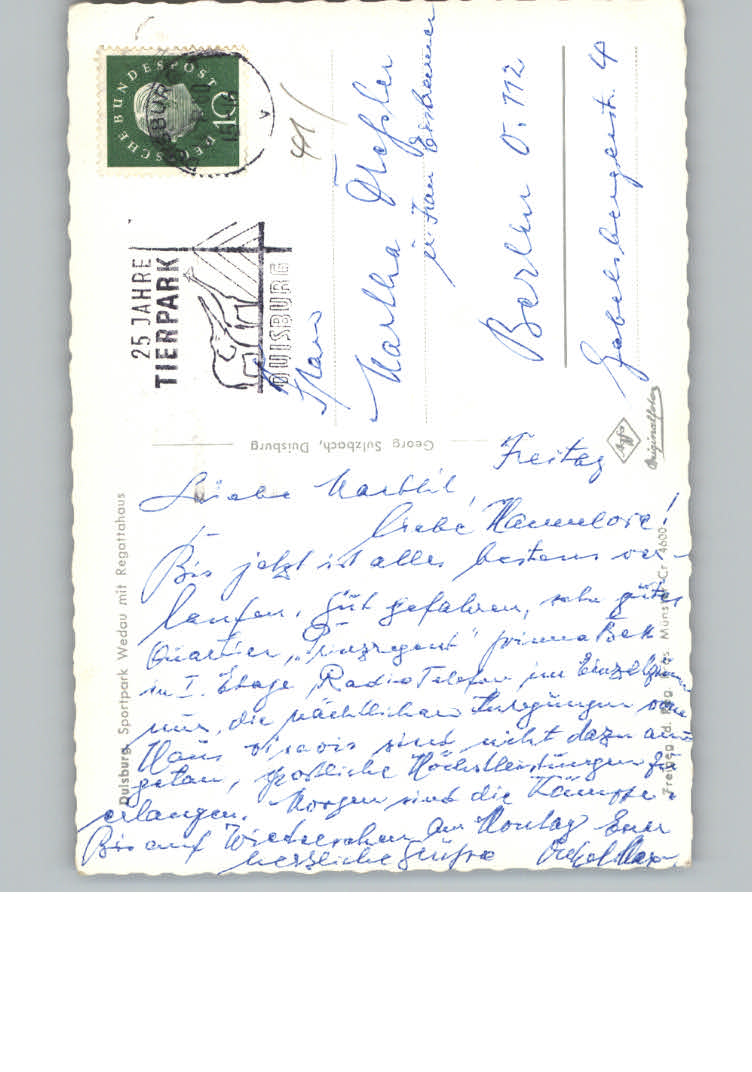 DEUTSCHE BUNDESPOST
10
DUISBURG
25 JAHRE
TIERPARK
DUISBURG
Frau
Martha
Berlin O. 112
Gabelsbergerstr. 4
Georg Sulzbach, Duisburg
Agfa
Originalfoto
Duisburg, Sportpark Wedau mit Regattahaus
Freitag
Liebe
Liebe Hannelore!
Bis jetzt ist alles bestens ver-
laufen. Gut gefahren, sehr gutes
Quartier, „Prinzregent" prima Bett
in I. Etage, Radio Telefon im
nur, die nächtlichen Anregungen vom
Haus visavis sind nicht dazu an-
getan, sportliche Höchstleistungen zu
erlangen. Morgen sind die Kämpfe.
Bis auf Wiedersehen am Montag Euer
herzliche Grüße Onkel Max